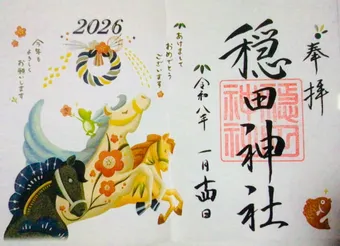 奉拝
穏田神社
穏田
神社
令和八年
一月十四日
2026
あけまして
おめでとう
ございます
今年も
よろしく
お願いします